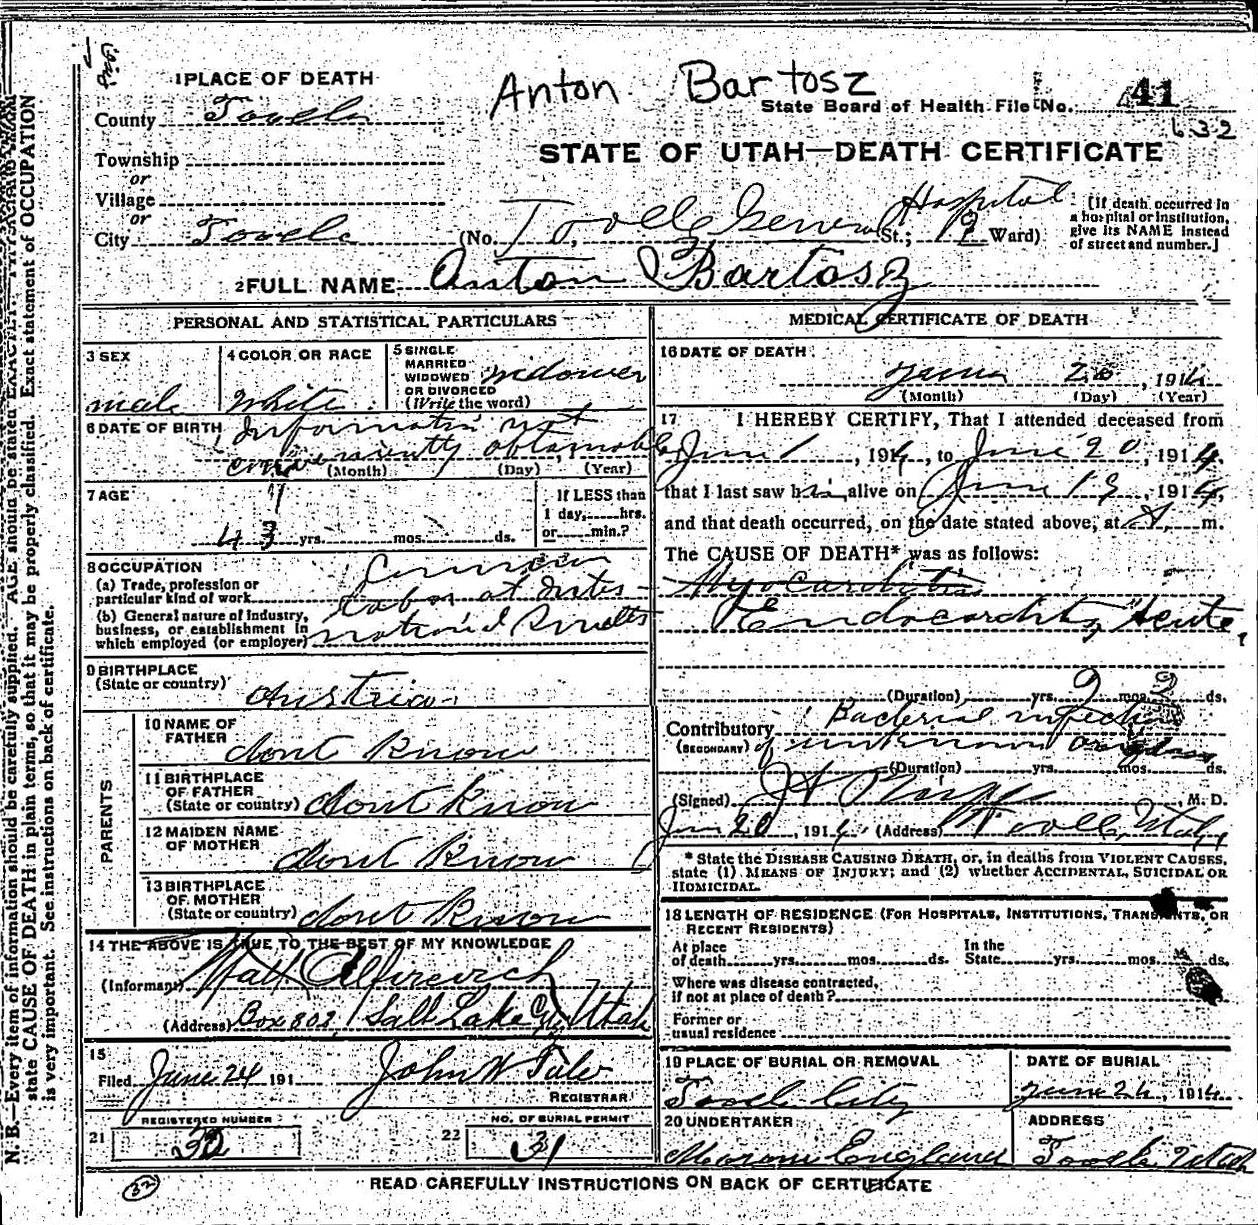 Anton Bartosz
1 PLACE OF DEATH
State Board of Health File No. 41
632
County Tooele
STATE OF UTAH—DEATH CERTIFICATE
Township
or
Village
or
City Tooele (No. Tooele General Hospital St.; Ward)
[If death occurred in
a hospital or institution,
give its NAME instead
of street and number.]
2 FULL NAME Anton Bartosz
PERSONAL AND STATISTICAL PARTICULARS
3 SEX
male
4 COLOR OR RACE
White
5 SINGLE
MARRIED
WIDOWED
OR DIVORCED
(Write the word)
widower
6 DATE OF BIRTH Information not
conveniently obtainable
(Month) (Day) (Year)
7 AGE
43 yrs. mos. ds.
If LESS than
1 day, hrs.
or min.?
8 OCCUPATION
(a) Trade, profession or
particular kind of work
Common
labor at Inter-
(b) General nature of Industry,
business, or establishment in
which employed (or employer)
national Smelter
9 BIRTHPLACE
(State or country)
Austria
PARENTS
10 NAME OF
FATHER
dont know
11 BIRTHPLACE
OF FATHER
(State or country) dont know
12 MAIDEN NAME
OF MOTHER
dont know
13 BIRTHPLACE
OF MOTHER
(State or country) dont know
14 THE ABOVE IS TRUE TO THE BEST OF MY KNOWLEDGE
(Informant) Matt
(Address) Box 802, Salt Lake City Utah
15
Filed June 24 191 John W
REGISTRAR
REGISTERED NUMBER
21 32
NO. OF BURIAL PERMIT
22 31
MEDICAL CERTIFICATE OF DEATH
16 DATE OF DEATH
June 20, 1914
(Month) (Day) (Year)
17 I HEREBY CERTIFY, That I attended deceased from
June 1, 1914, to June 20, 1914.
that I last saw him alive on June 19, 1914,
and that death occurred, on the date stated above, at A. m.
The CAUSE OF DEATH* was as follows:
Myocarditis
Endocarditis, Acute,
(Duration) yrs. mos. ds.
Contributory Bacterial infection
(SECONDARY) of unknown origin
(Duration) yrs. mos. ds.
(Signed) M. D.
Jun 20, 1914 (Address) Tooele, Utah
* State the DISEASE CAUSING DEATH, or, in deaths from VIOLENT CAUSES,
state (1) MEANS OF INJURY; and (2) whether ACCIDENTAL, SUICIDAL OR
HOMICIDAL.
18 LENGTH OF RESIDENCE (FOR HOSPITALS, INSTITUTIONS, TRANSIENTS, OR
RECENT RESIDENTS)
At place
of death yrs. mos. ds.
In the
State yrs. mos. ds.
Where was disease contracted,
if not at place of death?
Former or
usual residence
19 PLACE OF BURIAL OR REMOVAL
Tooele City
DATE OF BURIAL
June 24, 1914
20 UNDERTAKER
Moroni England
ADDRESS
Tooele Utah
32
READ CAREFULLY INSTRUCTIONS ON BACK OF CERTIFICATE
N. B.—Every item of information should be carefully supplied. AGE should be stated EXACTLY.
state CAUSE OF DEATH in plain terms, so that it may be properly classified. Exact statement of OCCUPATION
is very important. See instructions on back of certificate.